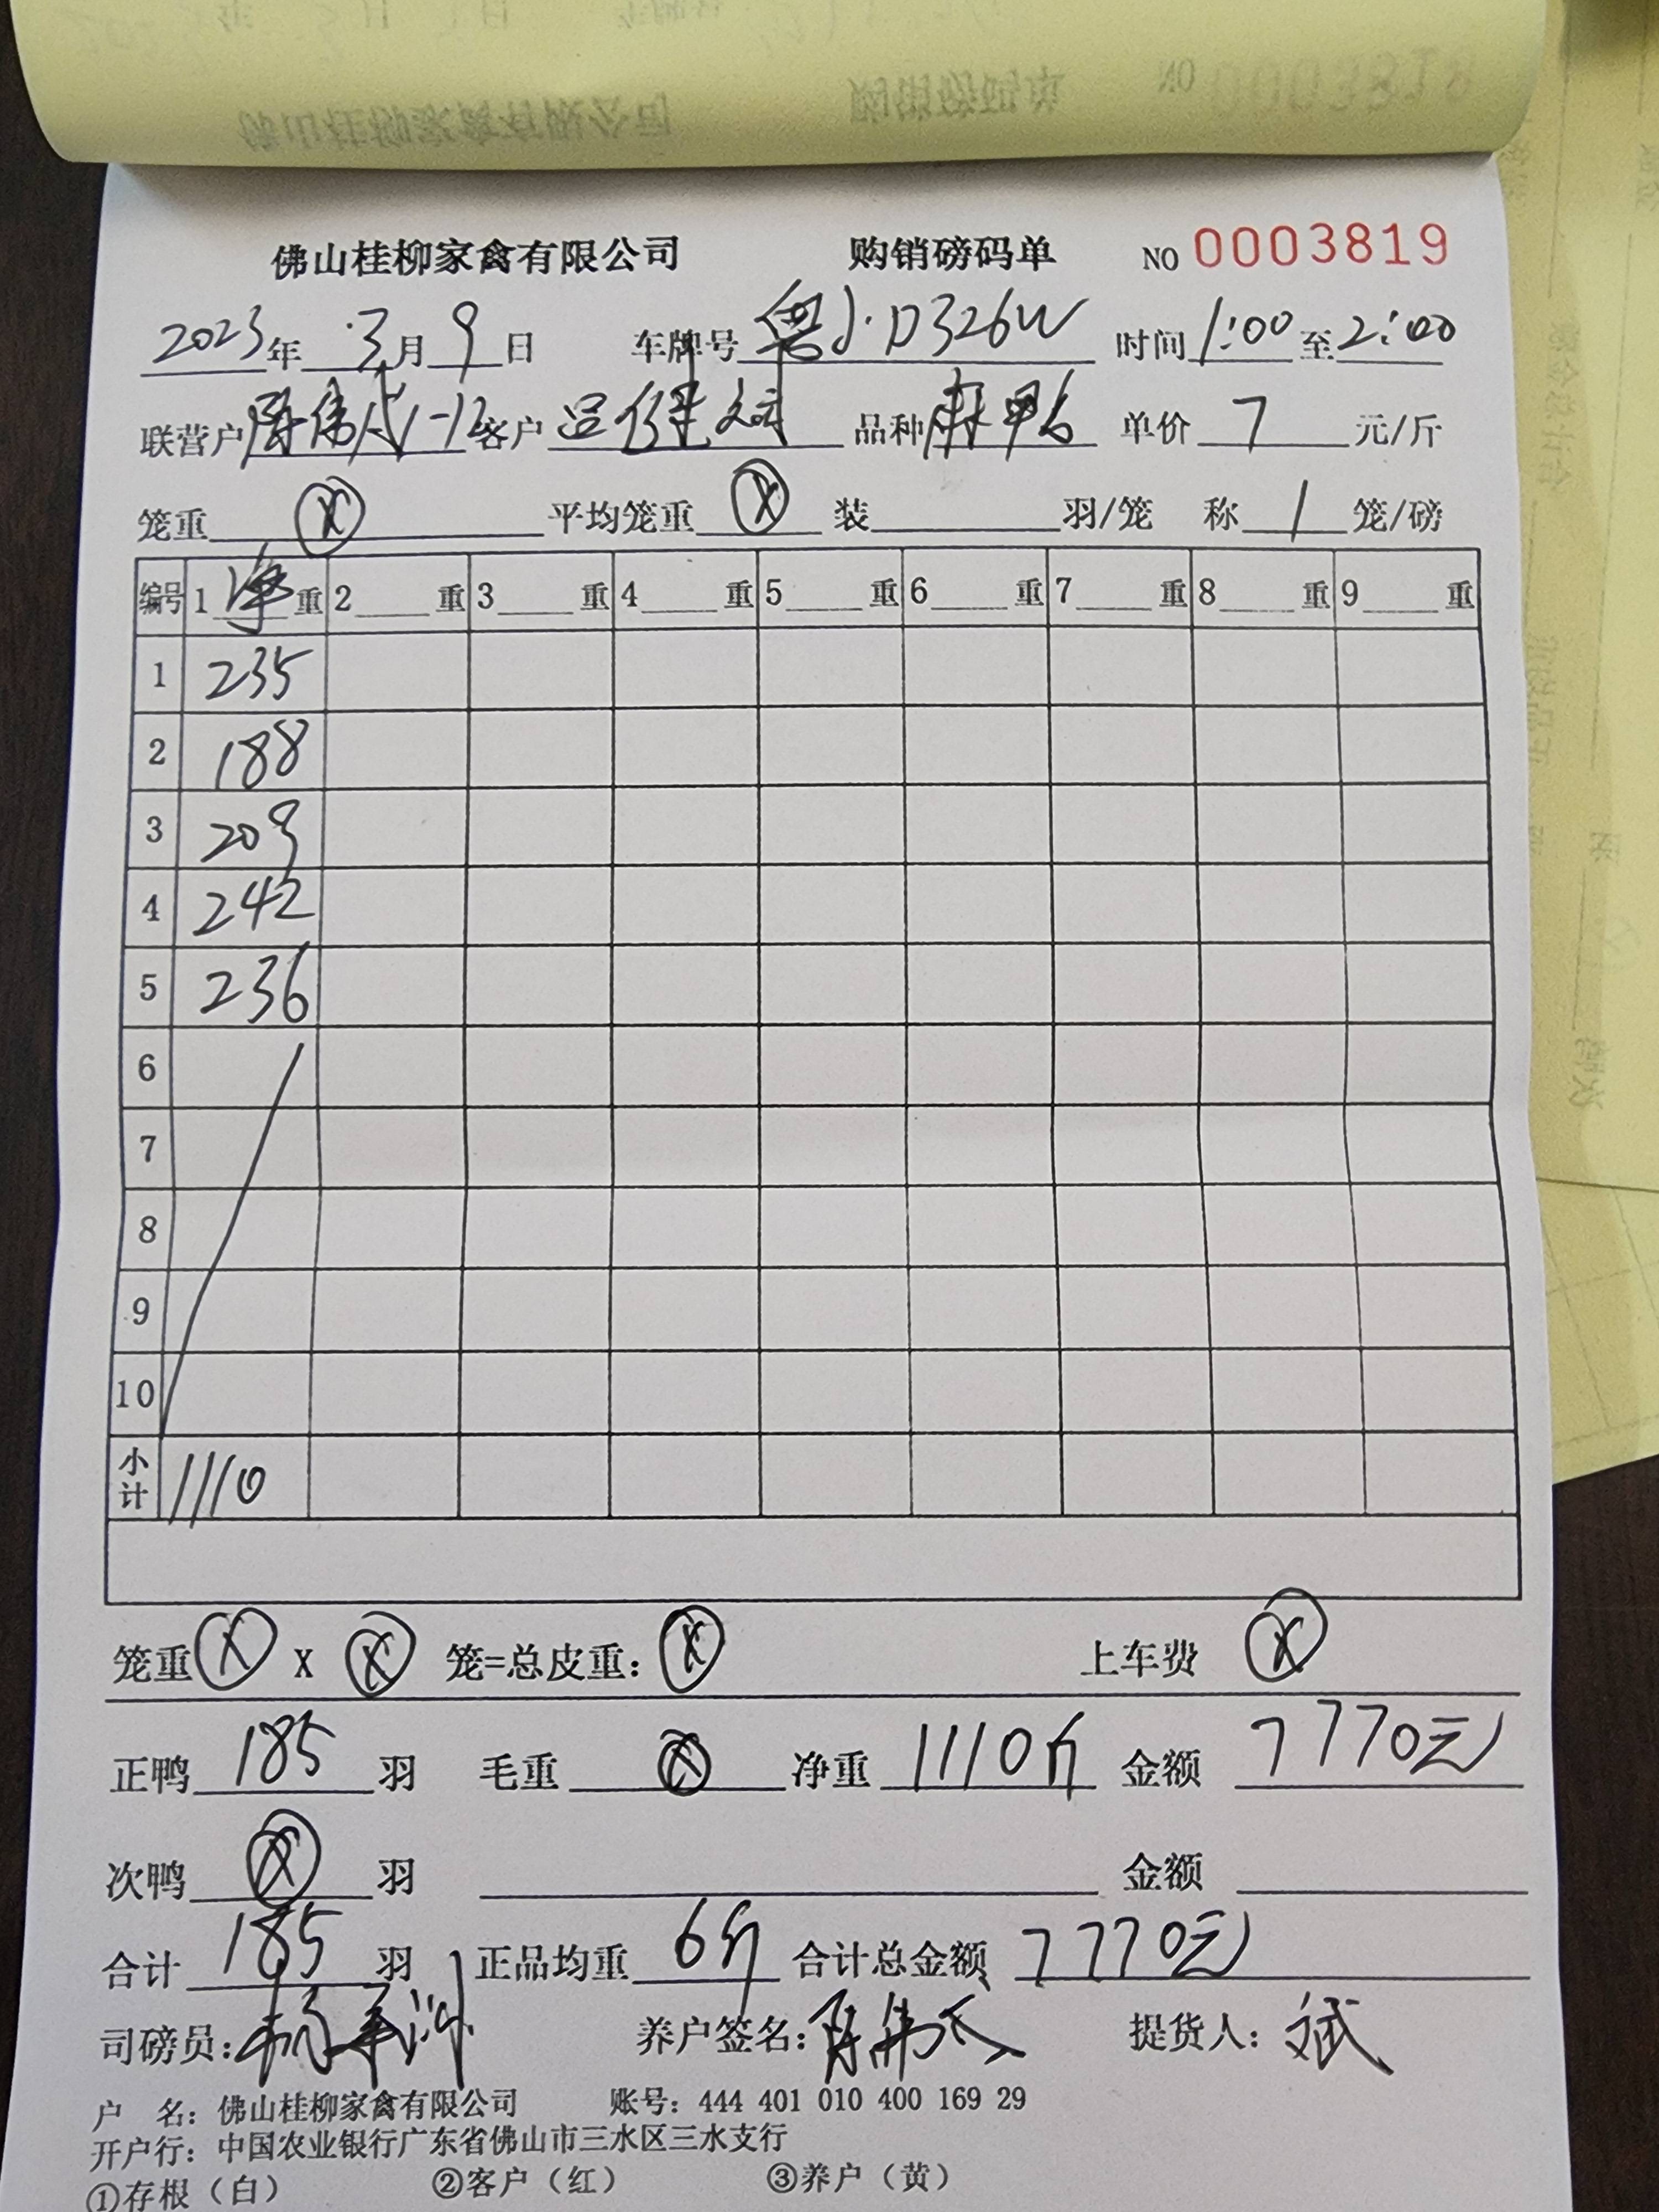 佛山桂柳家禽有限公司 购销磅码单 NO 0003819
2023年 3月 9日 车牌号 粤J·D326W 时间 1:00 至 2:00
联营户 陈伟 1-12 客户 品种 麻鸭 单价 7 元/斤
笼重 X 平均笼重 X 装 羽/笼 称 1 笼/磅
编号 1 净 重 2 重 3 重 4 重 5 重 6 重 7 重 8 重 9 重
1 235
2 188
3 209
4 242
5 236
6
7
8
9
10
小计 1110
笼重 X X X 笼=总皮重: X 上车费 X
正鸭 185 羽 毛重 X 净重 1110斤 金额 7770元
次鸭 X 羽 金额
合计 185 羽 正品均重 6斤 合计总金额 7770元
司磅员: 养户签名: 陈伟 提货人: 斌
户 名: 佛山桂柳家禽有限公司 账号: 444 401 010 400 169 29
开户行: 中国农业银行广东省佛山市三水区三水支行
①存根（白） ②客户（红） ③养户（黄）